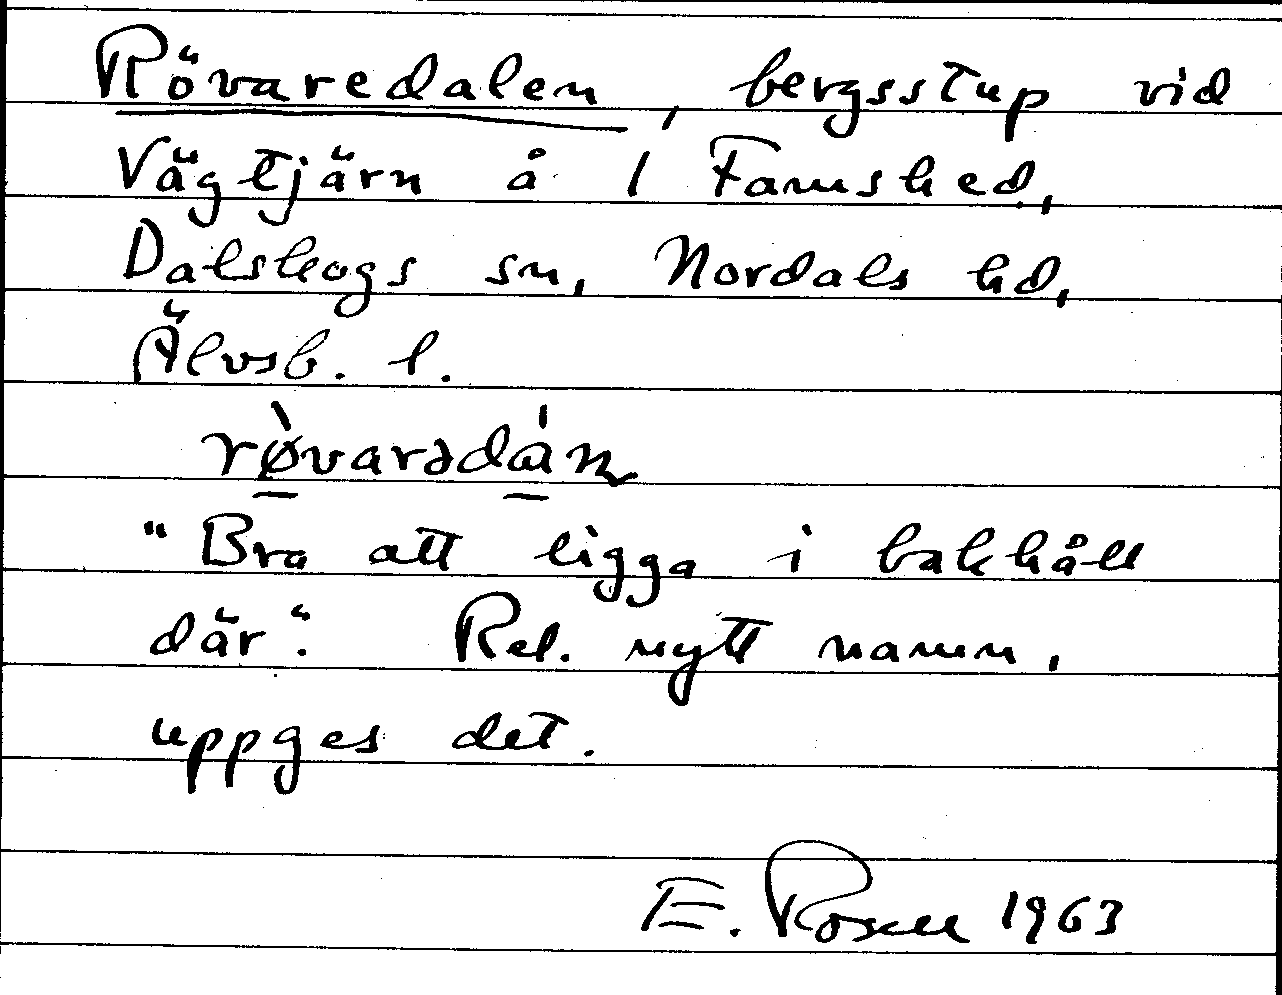 Rövaredalen, bergsstup vid
Vägtjärn å 1 Famshed,
Dalskogs sn, Nordals hd,
Älvsb. l.
"Bra att ligga i bakhåll
där". Rel. nytt namn,
uppges det.
E. Rosell 1963